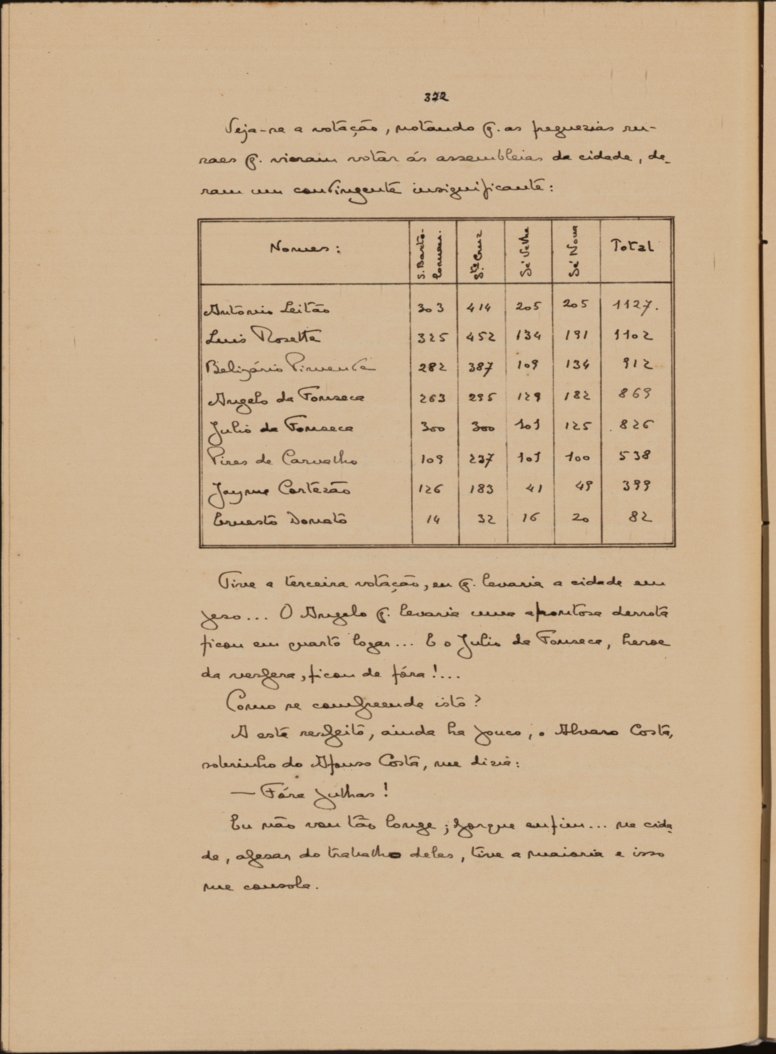 372
Veja-se a votação, notando q. as freguezias ru-
raes q. vieram votar ás assembleias da cidade, de-
ram um contingente insignificante:
Nomes: S. Barto-lomeu. Sta Cruz Sé Velha Sé Nova Total
Antonio Leitão 303 414 205 205 1127.
Luis Rosette 325 452 134 191 1102
Belizário Pimenta 282 387 109 134 912
Angelo da Fonseca 263 295 129 182 869
Julio da Fonseca 300 300 101 125 826
Pires de Carvalho 109 227 101 100 538
Jayme Cortezão 126 183 41 49 399
Ernesto Donato 14 32 16 20 82
Tive a terceira votação, eu q. levaria a cidade em
peso... O Angelo q. levaria uma apontosa derrota
ficou em quarto logar... E o Julio da Fonseca, heroe
da vespera, ficou de fóra!...
Como se compreende isto?
A este respeito, ainda ha pouco, o Alvaro Costa,
sobrinho do Afonso Costa, me dizia:
— Fóra pulhas!
Eu não vou tão longe; porque enfim... na cida-
de, apesar do trabalho deles, tive a maioria e isso
me consola.